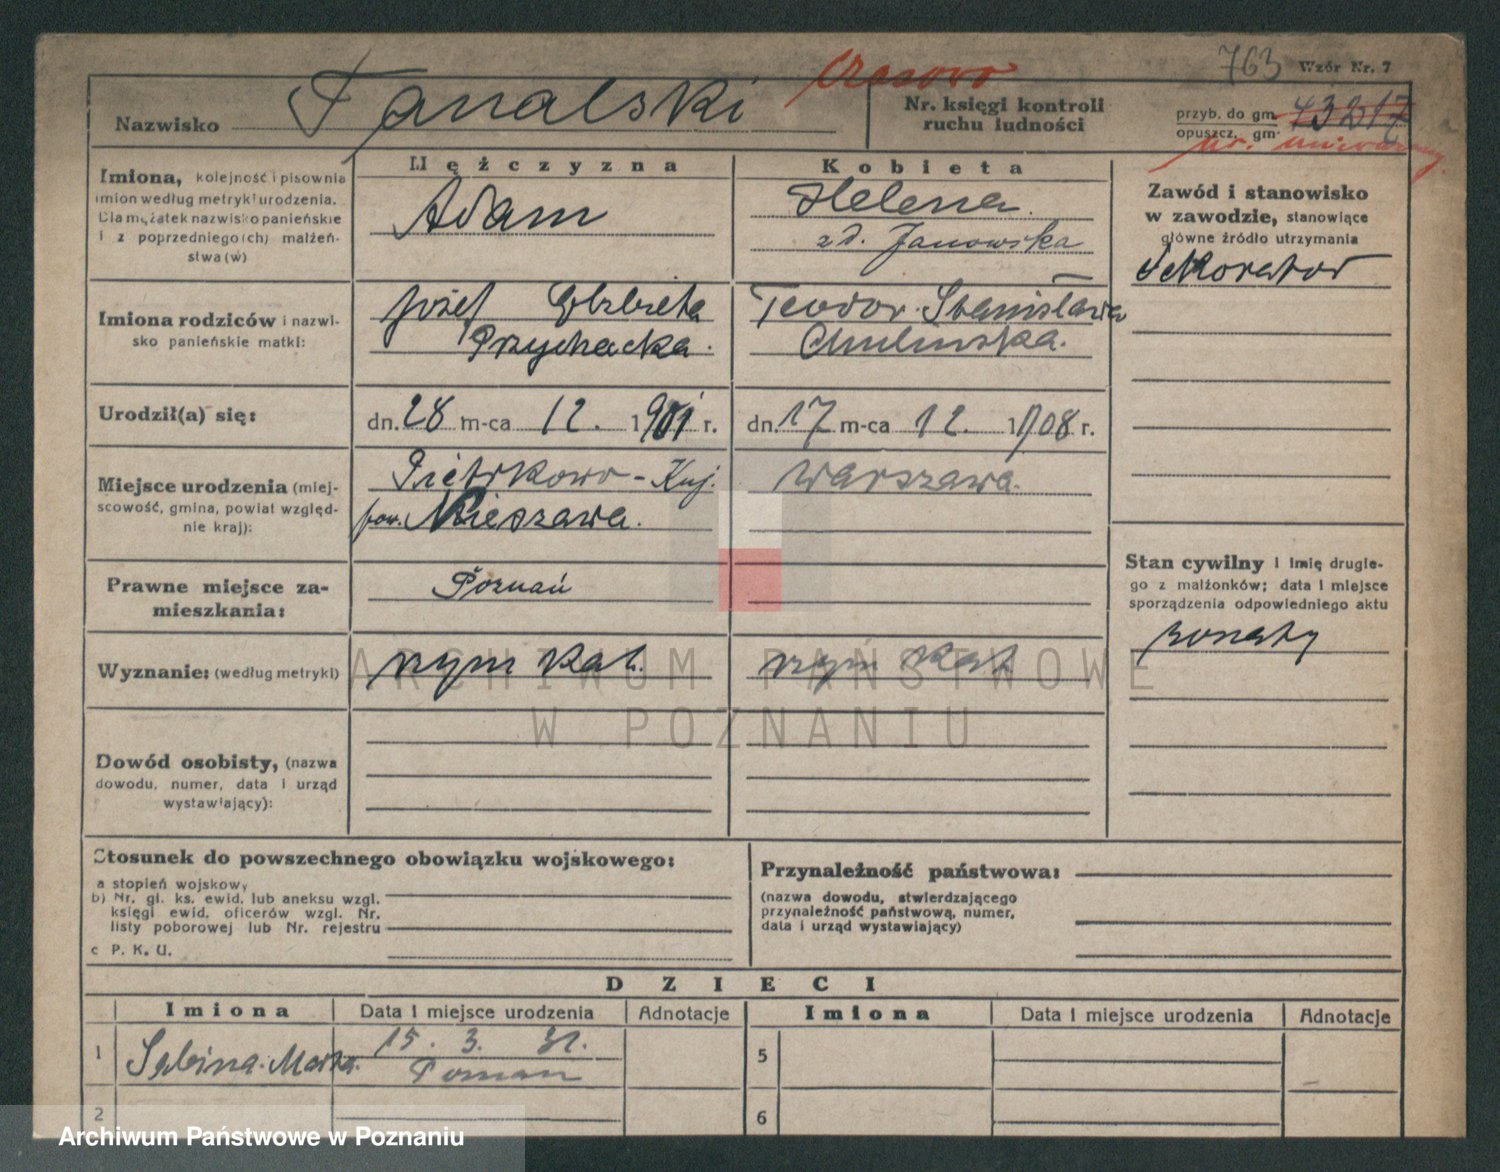 763 Wzór Nr. 7
Nazwisko Tanalski czasowo
Nr. księgi kontroli
ruchu ludności
przyb. do gm. 43217
opuszcz. gm.
nr. unieważniony.
Mężczyzna
Kobieta
Imiona, kolejność i pisownia
imion według metryki urodzenia.
Dla mężatek nazwisko panieńskie
i z poprzedniego(ch) małżeń-
stwa(w)
Adam
Helena
zd. Janowska
Zawód i stanowisko
w zawodzie, stanowiące
główne źródło utrzymania
dekorator
Imiona rodziców i nazwi-
sko panieńskie matki:
Józef Elżbieta
Przychacka.
Teodor. Stanisława
Chulinska.
Urodził(a) się:
dn. 28 m-ca 12. 1901 r.
dn. 17 m-ca 12. 1908 r.
Miejsce urodzenia (miej-
scowość, gmina, powiat względ-
nie kraj):
Piotrkowo - Kuj.
pow. Nieszawa.
Warszawa.
Prawne miejsce za-
mieszkania:
Poznań
Stan cywilny i imię drugie-
go z małżonków; data i miejsce
sporządzenia odpowiedniego aktu
żonaty
Wyznanie: (według metryki)
rzym kat.
rzym kat.
Dowód osobisty, (nazwa
dowodu, numer, data i urząd
wystawiający):
Stosunek do powszechnego obowiązku wojskowego:
a stopień wojskowy
b) Nr. gł. ks. ewid. lub aneksu wzgl.
księgi ewid. oficerów wzgl. Nr.
listy poborowej lub Nr. rejestru
c P. K. U.
Przynależność państwowa:
(nazwa dowodu, atwierdzającego
przynależność państwową, numer,
data i urząd wystawiający)
DZIECI
Imiona Data i miejsce urodzenia Adnotacje
Imiona Data i miejsce urodzenia Adnotacje
1 Sabina. Marta. 15. 3. 31.
Poznań
5
2
6
ARCHIWUM PAŃSTWOWE
W POZNANIU
Archiwum Państwowe w Poznaniu